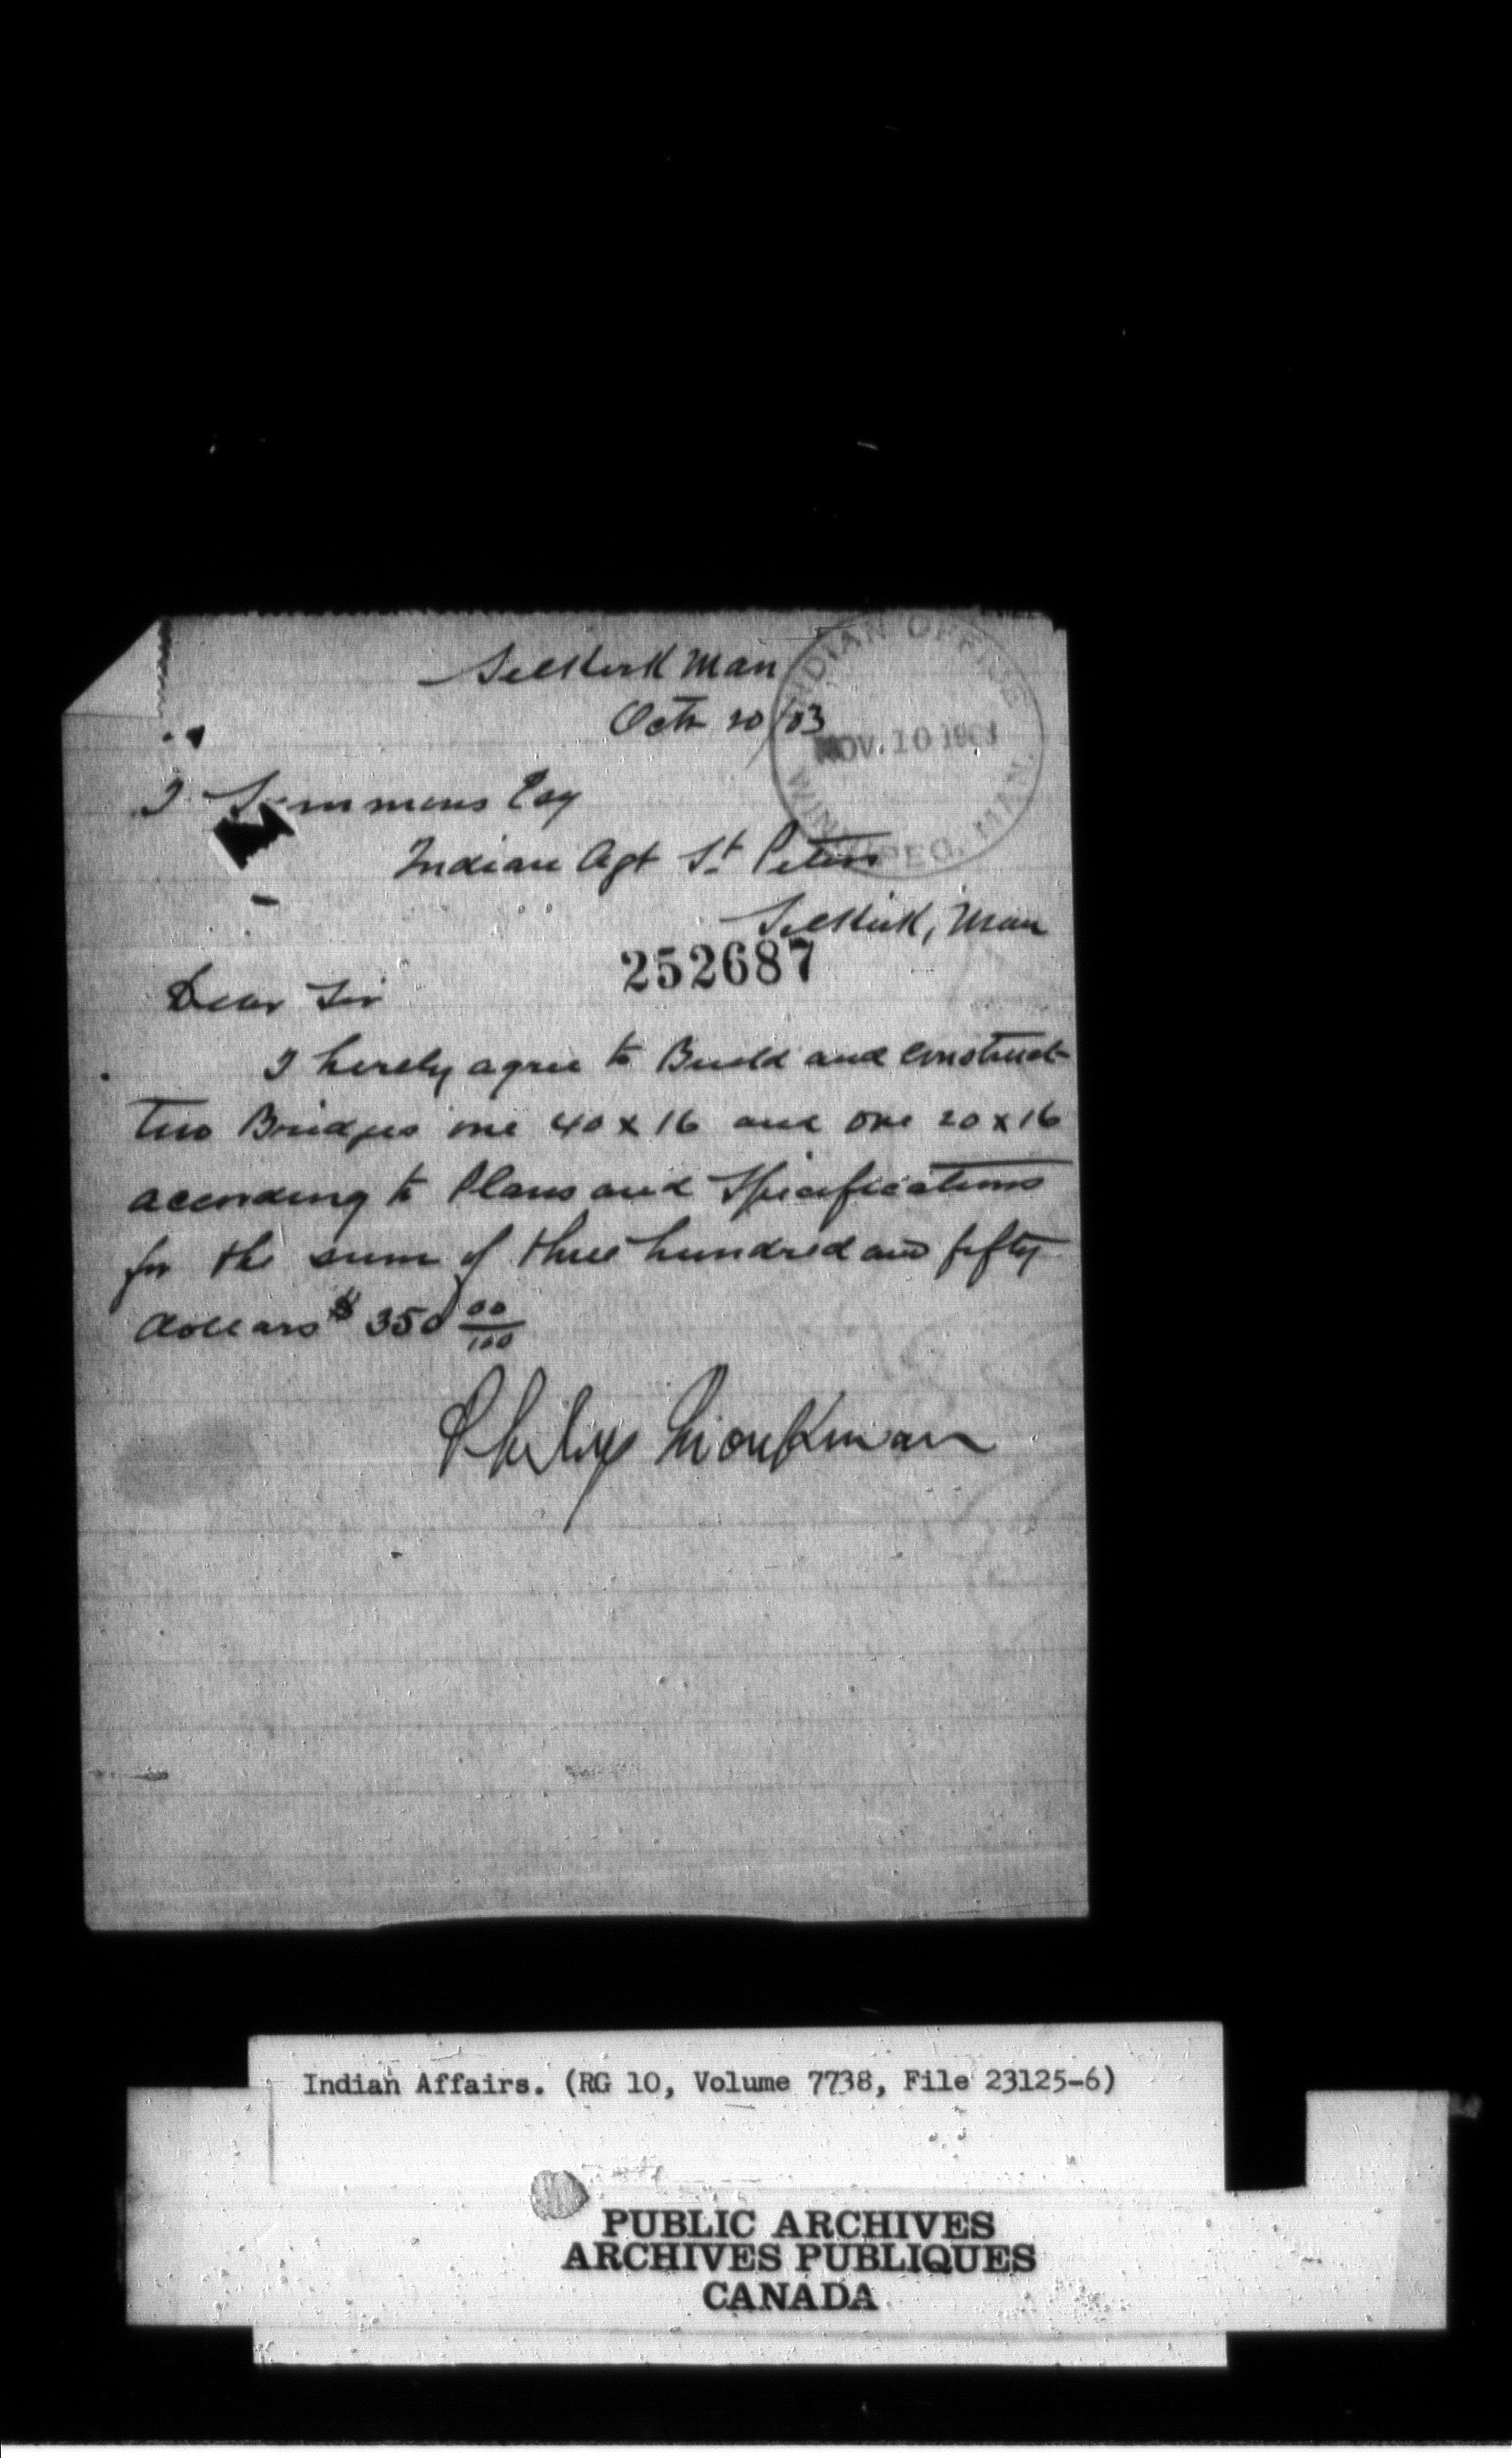 Selkirk Man
Octr 20/03
INDIAN OFFICE
NOV. 10 1903
WINNIPEG, MAN.
J Semmens Esq
Indian Agt St Peters
Selkirk, Man
252687
Dear Sir
I hereby agree to Build and Construct
Two Bridges one 40 x 16 and one 20 x 16
according to Plans and Specifications
for the sum of three hundred and fifty
dollars $ 350 00/100
Philip Monkman
Indian Affairs. (RG 10, Volume 7738, File 23125-6)
PUBLIC ARCHIVES
ARCHIVES PUBLIQUES
CANADA